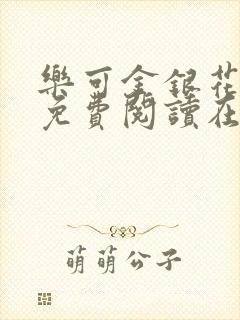 樂可金銀花
免費閱讀在
萌萌公子